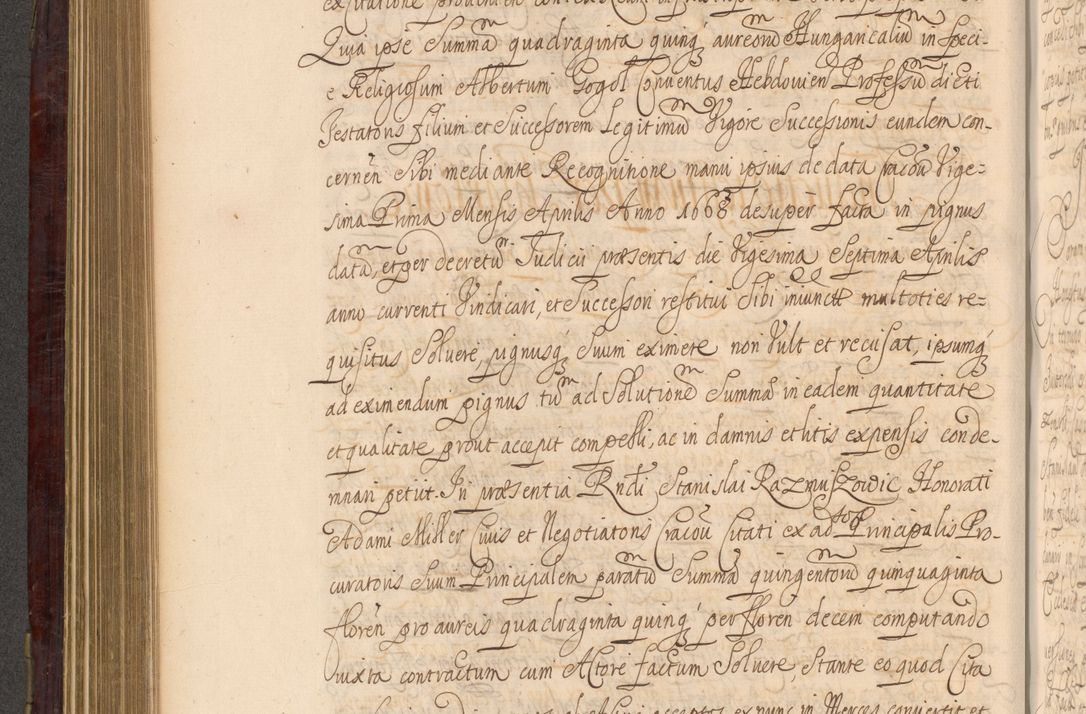 Quia ipse Summã quadraginta quinq aureorũ Hungaricaliũ in speci-
e Religiosum Albertum Gogol Conventus Hebdovien Professũ dicti
Testatoris filium et Successorem Legitimũ Vigore Successionis eundem con-
cernen̄ Sibi mediante Recognitione manu ipsius dedata Cracoũ Vige-
sima Prima Mensis Aprilis Anno 1668 desuper facta in pignus
datã, et per decretũ Judicii præsentis die Vigesima Septima Aprilis
anno currenti Vindicari, et Successori restitui Sibi iniunctã multoties re-
quisitus Solvere, pignusq Suum eximere non Vult et recusat, ipsumq
ad eximendum pignus tũ ad Solutionẽ Summã in eadem quantitate
et qualitate prout accepit compelli, ac in damnis et litis expensis conde-
mnari petiit. In præsentia Rndi Stanislai Razmuszowic, Honorati
Adami Miller Civis et Negotiatoris Cracoũ Citati ex ad Principalis Pro-
curatoris Suum Principalem paratũ Summã quingentorũ quinquaginta
floren̄ pro aureis quadraginta quinq per floren̄ decem computando
iuxta contractum cum Actore factum Solvere, Stante eo quod Cita